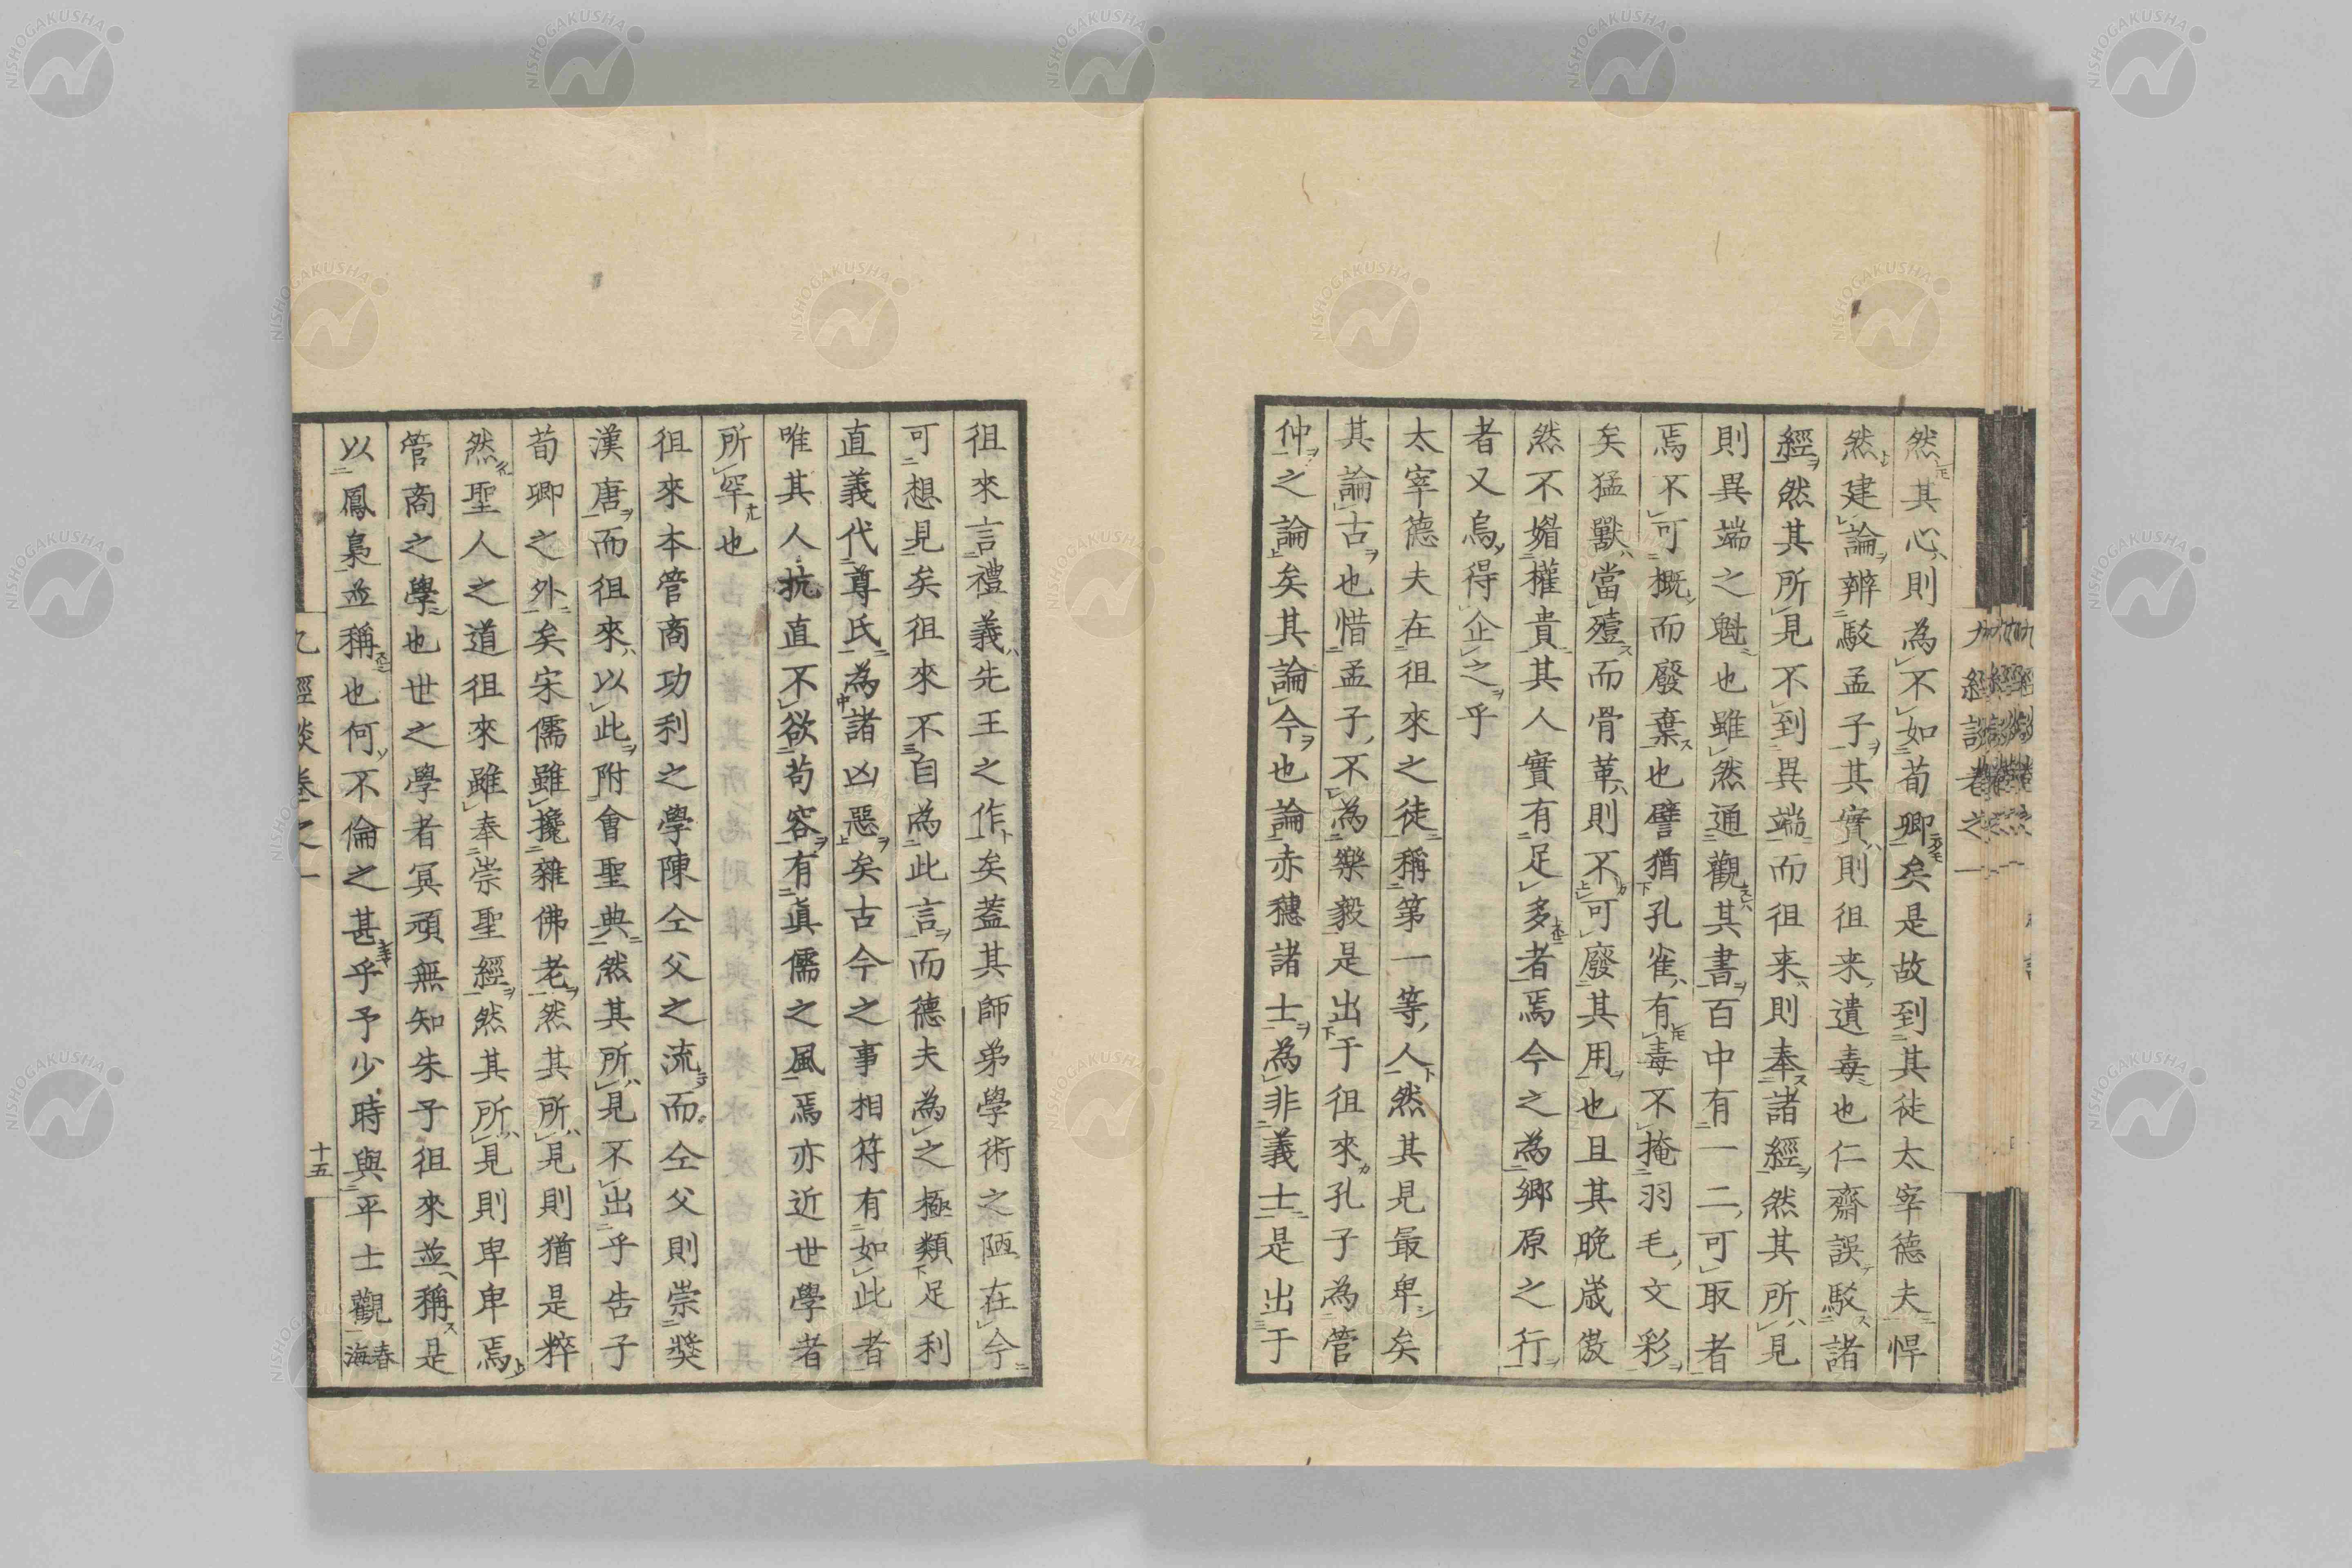 然其心則為不如荀卿矣是故到其徒太宰德夫悍
然建論辨駁孟子其實則徂来遺毒也仁齋誤駁諸
經然其所見不到異端而徂来則奉諸經然其所見
則異端之魁也雖然通觀其書百中有一二可取者
焉不可概而廢棄也譬猶孔雀有毒不掩羽毛文彩
矣猛獸當殪而骨革則不可廢其用也且其晚歲傲
然不媚權貴其人實有足多者焉今之為鄉原之行
者又烏得企之乎
太宰德夫在徂來之徒稱第一等人然其見最卑矣
其論古也惜孟子不為樂毅是出于徂來孔子為管
仲之論矣其論今也論赤穗諸士為非義士是出于
徂來言禮義先王之作矣蓋其師弟學術之陋在今
可想見矣徂來不自為此言而德夫為之極類足利
直義代尊氏為諸凶惡矣古今之事相符有如此者
唯其人抗直不欲苟容有眞儒之風焉亦近世學者
所罕也
徂來本管商功利之學陳仝父之流而仝父則崇獎
漢唐而徂來以此附會聖典然其所見不出乎告子
荀卿之外矣宋儒雖攙雜佛老然其所見則猶是粹
然聖人之道徂來雖奉崇聖經然其所見則卑卑焉
管商之學也世之學者冥頑無知朱子徂來並稱是
以鳳梟並稱也何不倫之甚乎予少時與平士觀春海
九經談卷之一
十五